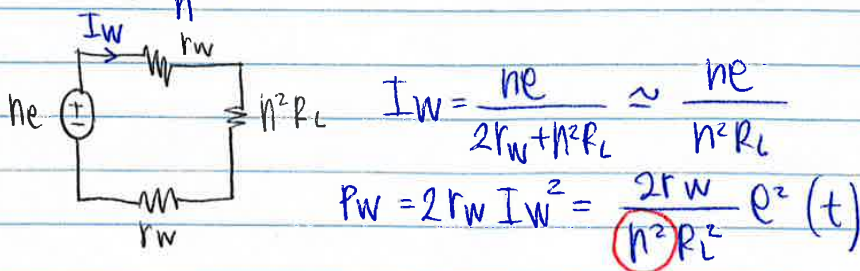 n
Iw
rw
ne
+
−
n²RL
rw
Iw = ne / (2rw + n²RL) ≃ ne / (n²RL)
Pw = 2rw Iw² = 2rw / (n²RL²) e²(t)